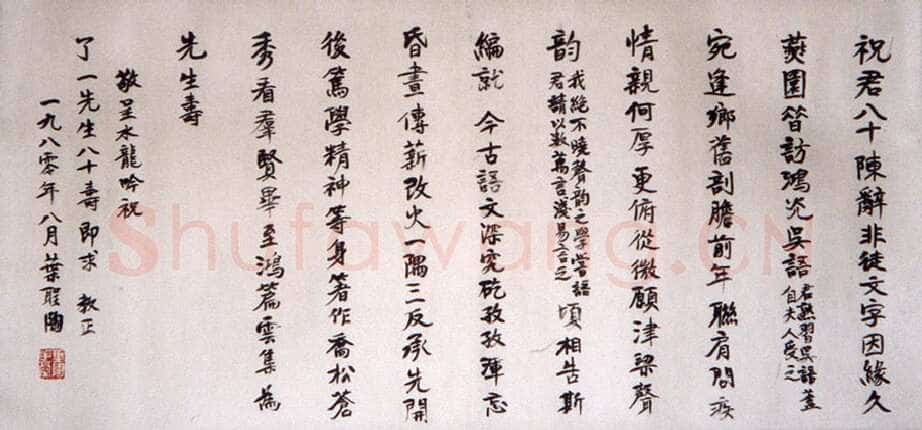 祝君八十陳辭非徒文字因緣久
燕園曾訪鴻光吳語君熟習吳語蓋自夫人受之
宛逢鄉舊剖膽前年聯肩問疾
情親何厚更俯從微願津梁聲
韵我絕不曉聲韵之學嘗語君請以數萬言淺易言之頃相告斯
編就今古語文深究矻孜孜渾忘
昏晝傳薪改火一隅三反承先開
後篤學精神等身著作喬松蒼
秀看羣賢畢至鴻篇雲集為
先生壽
敬呈水龍吟祝
了一先生八十壽即求 教正
一九八零年八月葉聖陶
Shufawang.CN